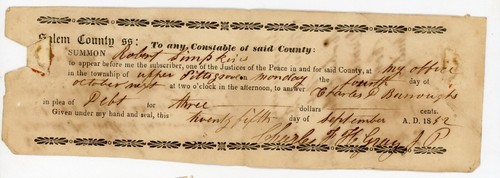 Salem County ss: To any Constable of said County:
SUMMON Robert Simpkins
to appear before me the subscriber, one of the Justices of the Peace in and for said County, at my office
in the township of upper Pittsgrove on monday the fourth day of
october next at two o'clock in the afternoon, to answer Charles D Burroughs
in plea of Debt for three dollars cents.
Given under my hand and seal, this twenty fifth day of september A. D. 1852
Charles F H Gray J P